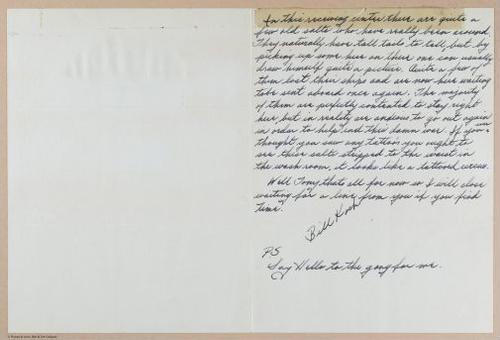 In this receiving center there are quite a
few old salts who have really been around.
They naturally have tall tails to tell, but by
picking up some here an there one can usually
draw himself quite a picture. Quite a few of
them lost their ships and are now here waiting
to be sent aboard once again. The majority
of them are perfectly contented to stay right
here, but in reality are anxious to go out again
in order to help end this damn war. If you
ever
thought you saw any tattoos you ought to
see these salts stripped to the waist in
the wash room, it looks like a tattooed circus.
Well Tony thats all for now so I will close
waiting for a line from you if you find
time.
Bill
PS
Say Hello to the gang for me.